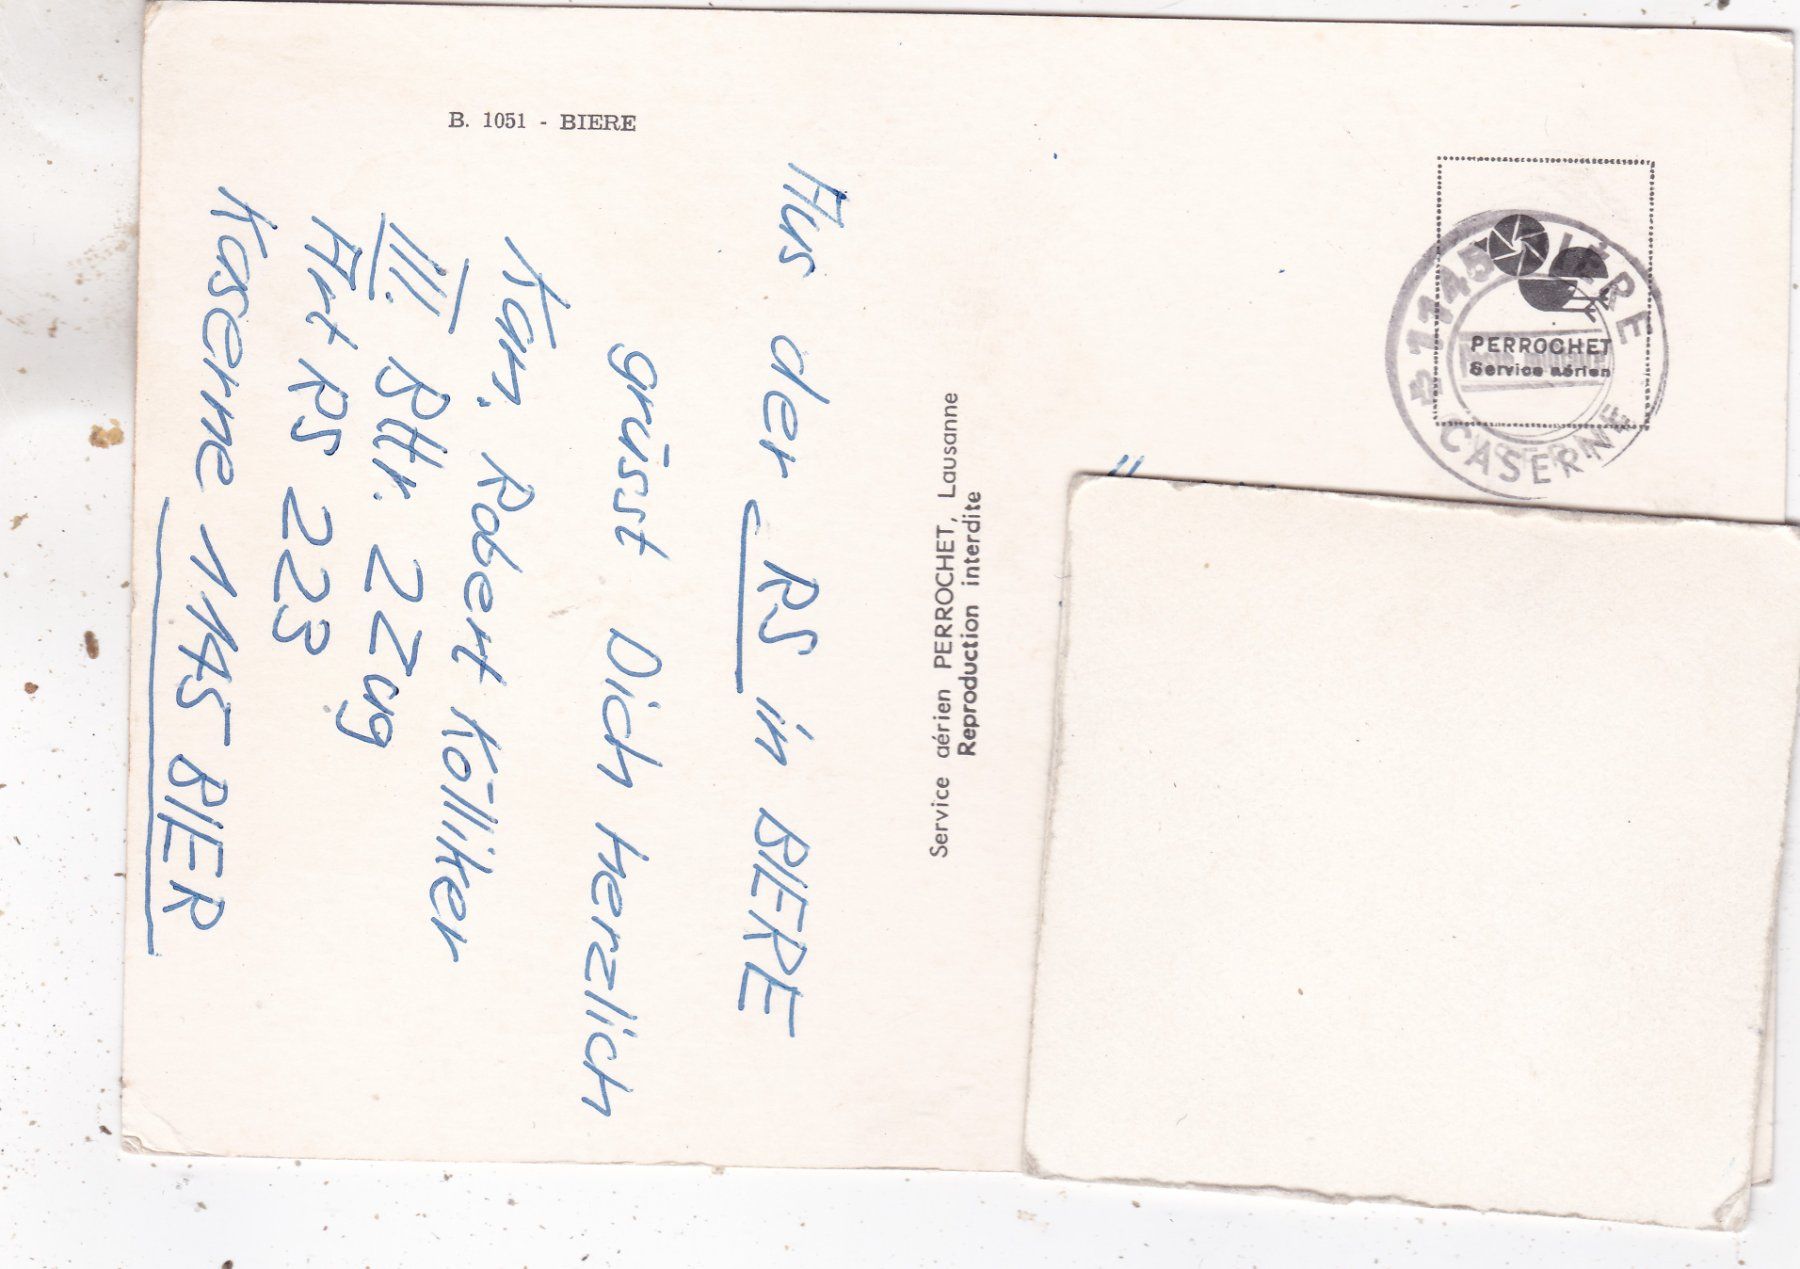 B. 1051 - BIERE
Aus der RS in BIERE
grüsst Dich herzlich
Kan. Robert Kölliker
III. Bttr. 2 Zug
Art RS 223
Kaserne 1145 BIER
Service aérien PERROCHET, Lausanne
Reproduction interdite
PERROCHET
Service aérien
1145 BIÈRE
CASERNE